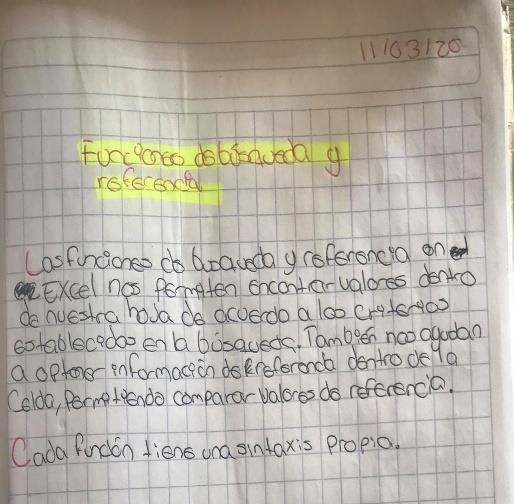 11/03/20
Funciones de búsqueda y
referencia
Las funciones de busqueda y referencia en
Excel nos permiten encontrar valores dentro
de nuestra hoja de acuerdo a los criterios
establecidos en la búsqueda. También nos ayudan
a optener información de referencia dentro de la
Celda, permitiendo comparar valores de referencia.
Cada función tiene una sintaxis propia.